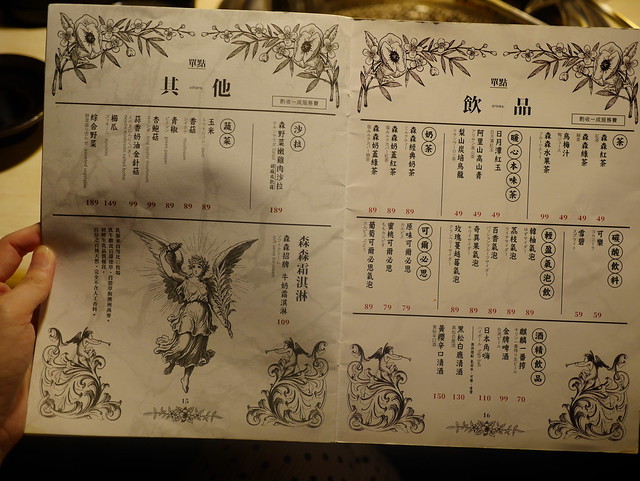 單點
飲品
酌收一成服務費
茶
森森紅茶
森森綠茶
烏梅汁
森森水果茶
49
49
49
99
暖心本味茶
日月潭紅玉
阿里山高山青
梨山炭焙烏龍
49
49
49
奶茶
森森經典奶茶
森森奶蓋紅茶
森森奶蓋綠茶
89
89
89
碳酸飲料
可樂
雪碧
59
59
輕盈氣泡飲
韓柚氣泡
荔枝氣泡
百香氣泡
奇異果氣泡
玫瑰蔓越莓氣泡
89
89
89
89
89
可爾必思
原味可爾必思
蜜桃可爾必思
葡萄可爾必思氣泡
79
79
89
酒精飲品
麒麟一番搾
金牌啤酒
日本角嗨
黑松白鹿清酒
黃櫻辛口清酒
70
99
110
130
150
16
單點
其他
酌收一成服務費
沙拉
森野菜嫩雞肉沙拉
189
蔬菜
玉米
香菇
青椒
杏鮑菇
蒜香奶油金針菇
櫛瓜
綜合野菜
89
89
89
99
99
149
189
森森霜淇淋
森森招牌 牛奶霜淇淋
109
15